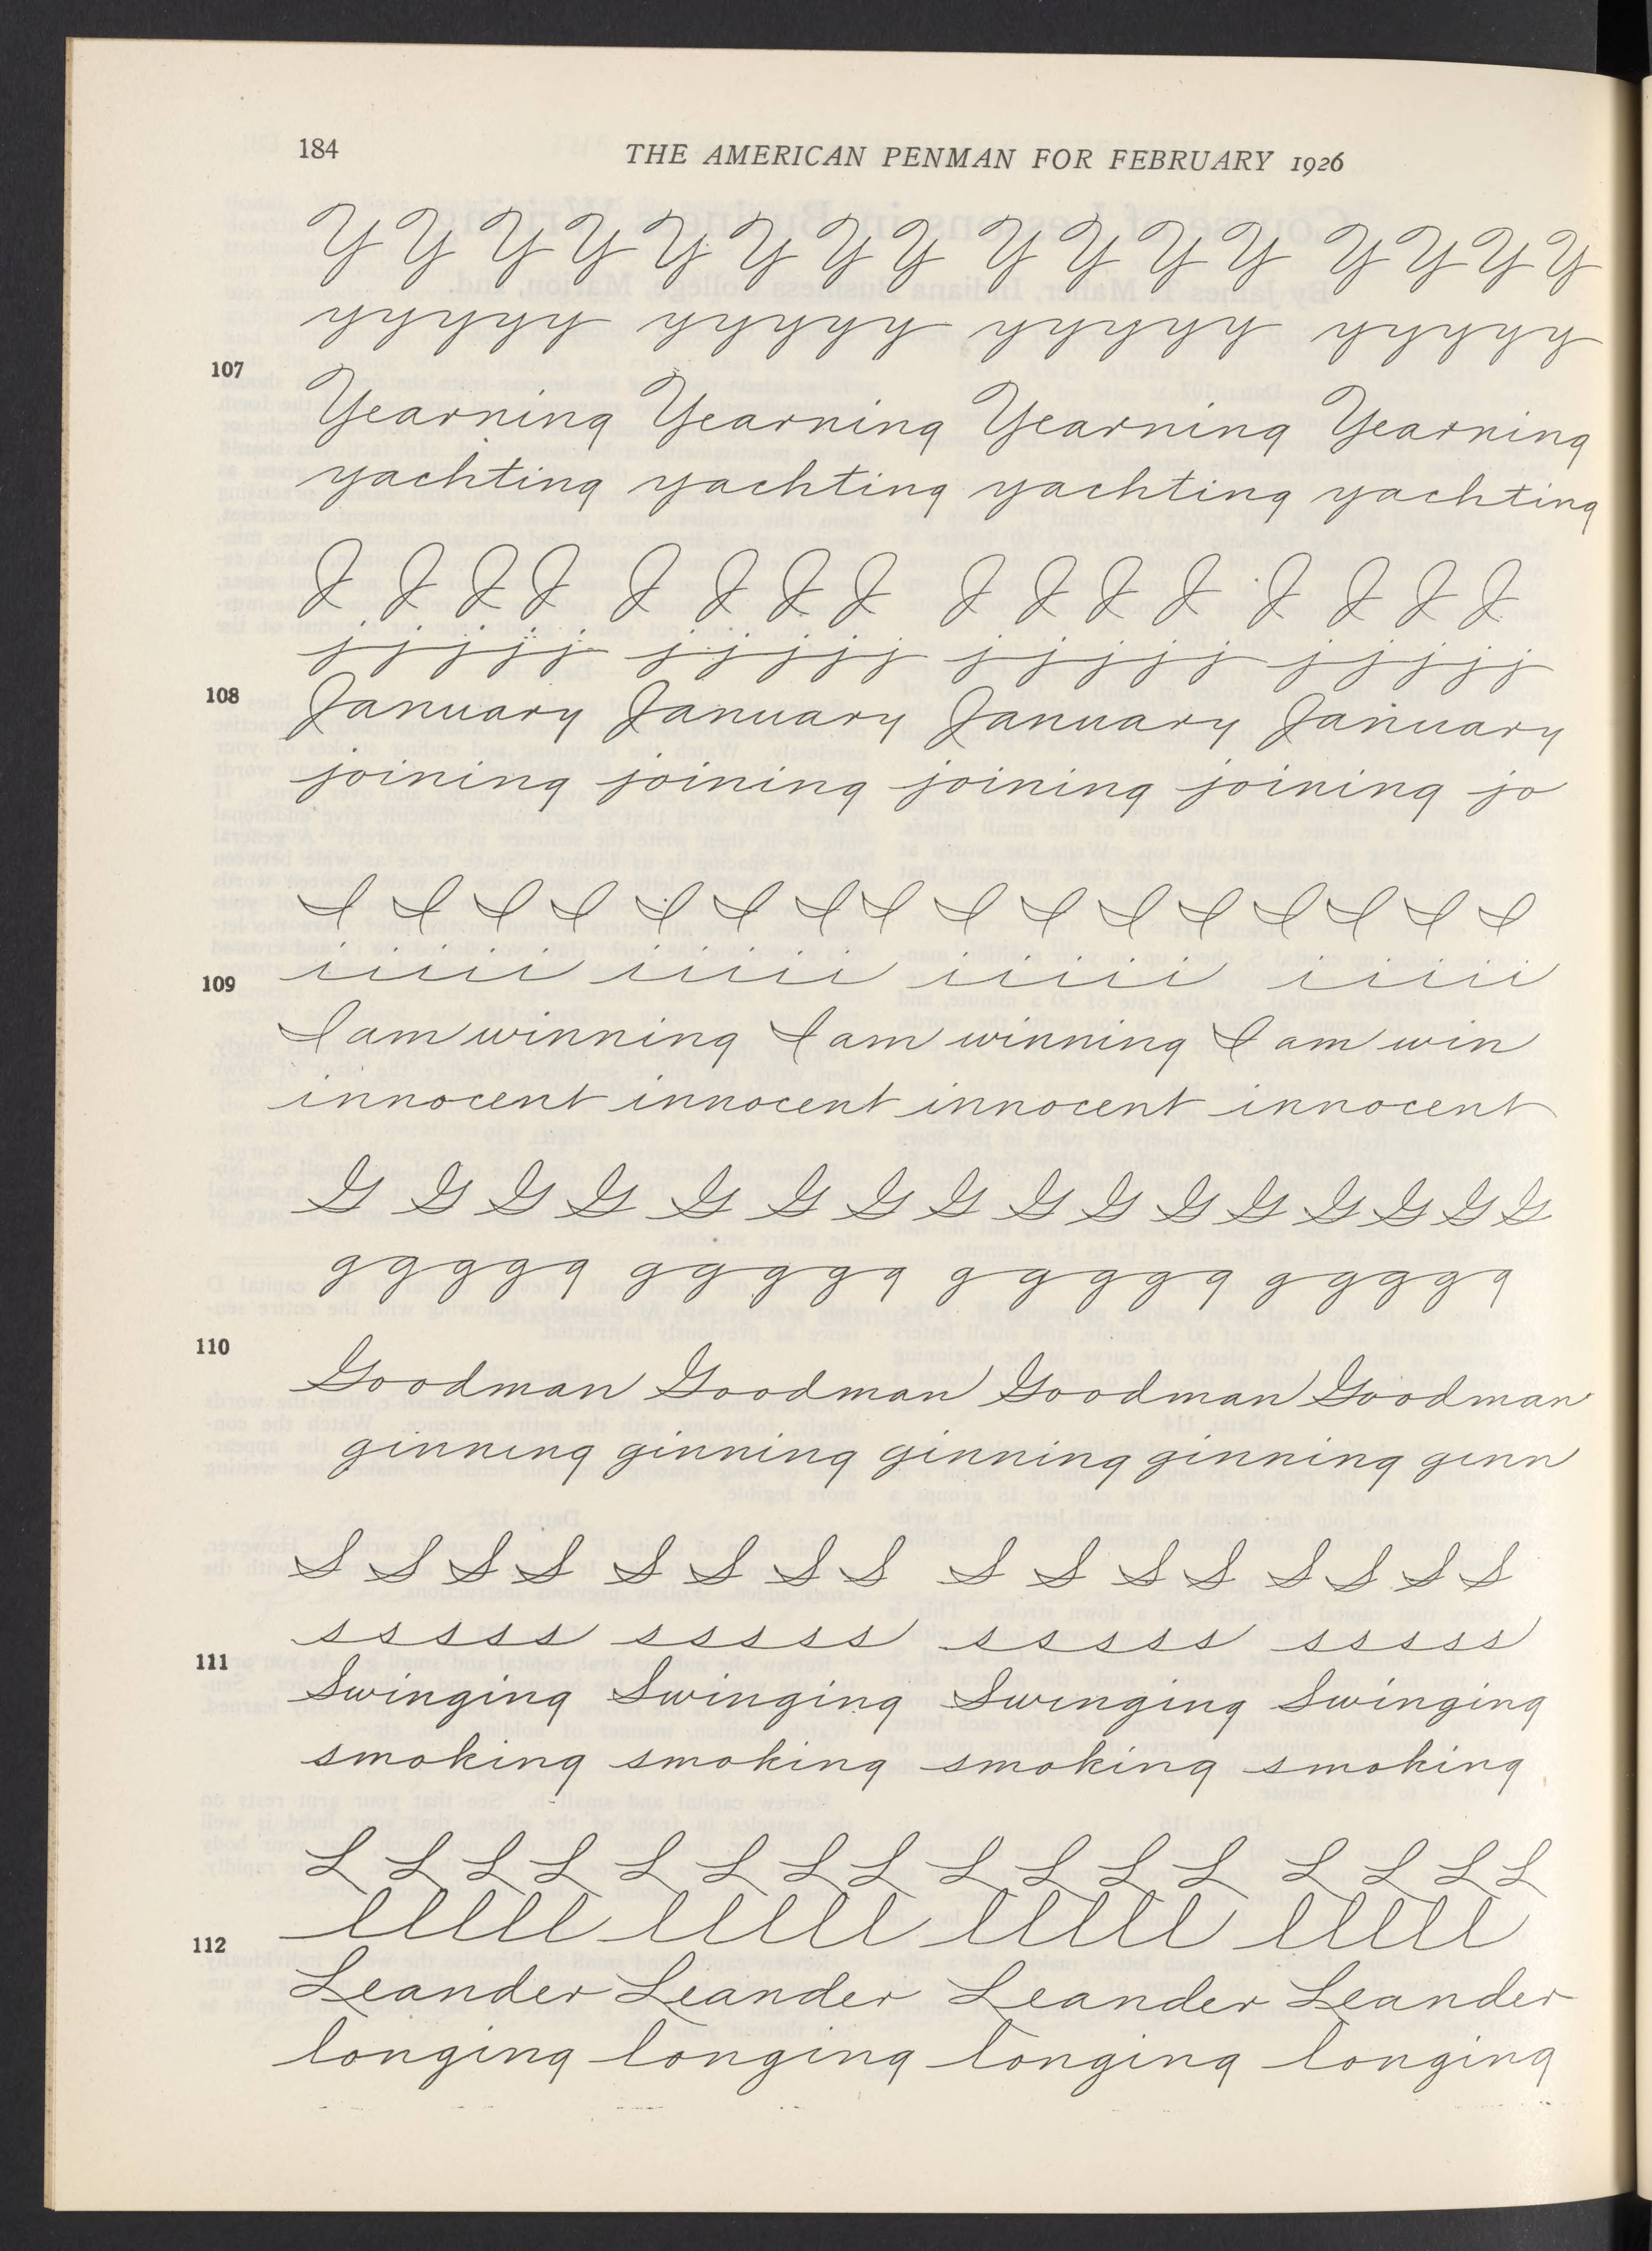 184 THE AMERICAN PENMAN FOR FEBRUARY 1926
Y Y Y Y Y Y Y Y Y Y Y Y Y Y Y Y
yyyyy yyyyy yyyyy yyyyy
107
Yearning Yearning Yearning Yearning
yachting yachting yachting yachting
J J J J J J J J J J J J J J J J
jjjjj jjjjj jjjjj jjjjj
108
January January January January
joining joining joining joining jo
I I I I I I I I I I I I I I I I
iiiii iiiii iiiii iiiii
109
I am winning I am winning I am win
innocent innocent innocent innocent
G G G G G G G G G G G G G G G G
ggggg ggggg ggggg ggggg
110
Goodman Goodman Goodman Goodman
ginning ginning ginning ginning ginn
S S S S S S S S S S S S S S S S
sssss sssss sssss sssss
111
Swinging Swinging Swinging Swinging
smoking smoking smoking smoking
L L L L L L L L L L L L L L L L
lllll lllll lllll lllll
112
Leander Leander Leander Leander
longing longing longing longing